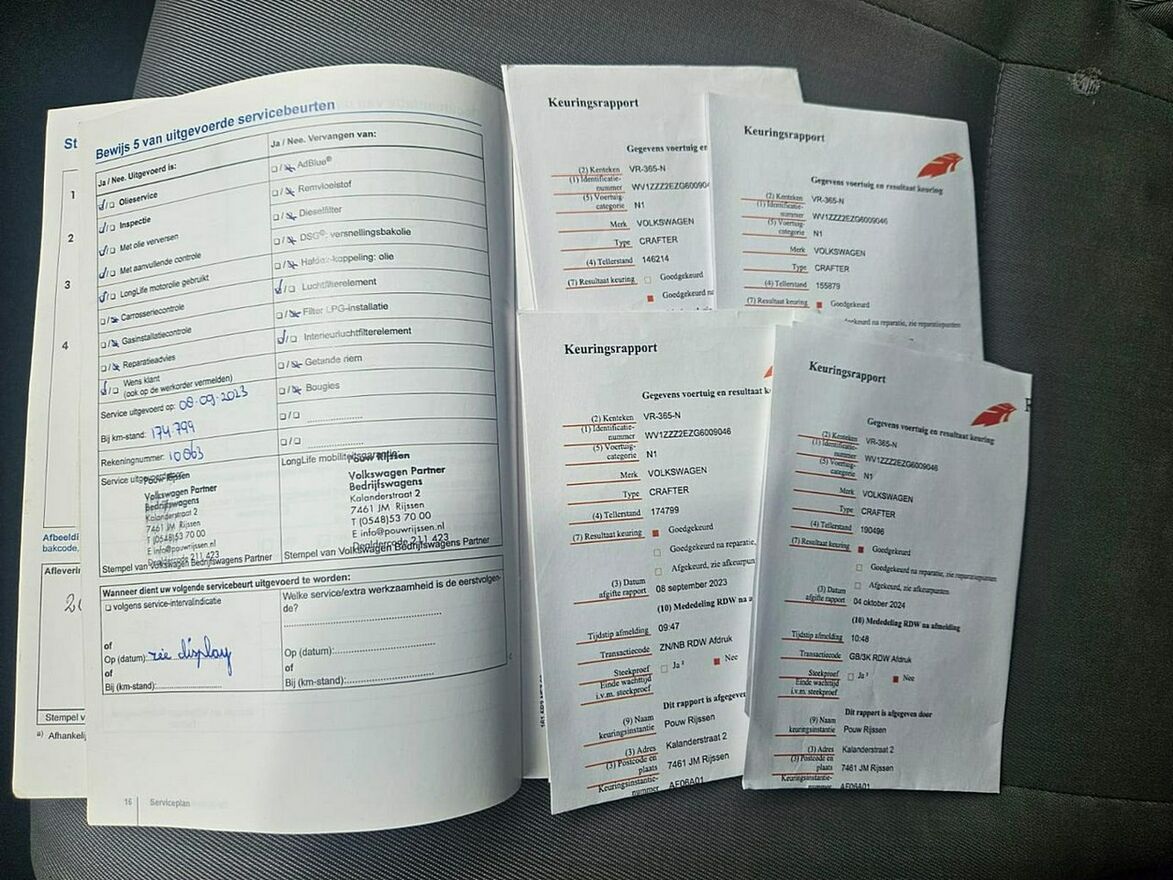 St
1
2
3
4
Afbeeldi
bakcode,
Aflever
Stempel v
a) Afhankelij
Bewijs 5 van uitgevoerde servicebeurten
Ja / Nee. Uitgevoerd is:
Olieservice
Inspectie
Met olie verversen
Met aanvullende controle
LongLife motorolie gebruikt
Carrosseriecontrole
Gasinstallatiecontrole
Reparatieadvies
Wens klant
(ook op de werkorder vermelden)
Service uitgevoerd op: 08-09-2023
Bij km-stand: 174.799
Rekeningnummer: 10863
Service uitgevoerd door:
Pouw Rijssen
Volkswagen Partner
Bedrijfswagens
Kalanderstraat 2
7461 JM Rijssen
T (0548)53 70 00
E info@pouwrijssen.nl
Dealdercode 211 423
Stempel van Volkswagen Bedrijfswagens Partner
Ja / Nee. Vervangen van:
AdBlue®
Remvloeistof
Dieselfilter
DSG®: versnellingsbakolie
Haldex-koppeling: olie
Luchtfilterelement
Filter LPG-installatie
Interieurluchtfilterelement
Getande riem
Bougies
LongLife mobiliteitsgarantie
Pouw Rijssen
Volkswagen Partner
Bedrijfswagens
Kalanderstraat 2
7461 JM Rijssen
T (0548)53 70 00
E info@pouwrijssen.nl
Dealdercode 211 423
Stempel van Volkswagen Bedrijfswagens Partner
Wanneer dient uw volgende servicebeurt uitgevoerd te worden:
volgens service-intervalindicatie
of
Op (datum): zie display
of
Bij (km-stand):
Welke service/extra werkzaamheid is de eerstvolgen-
de?
Op (datum):
of
Bij (km-stand):
16 Serviceplan
Keuringsrapport
Gegevens voertuig en
(2) Kenteken VR-365-N
(1) Identificatie-
nummer WV1ZZZ2EZG60090
(5) Voertuig-
categorie N1
Merk VOLKSWAGEN
Type CRAFTER
(4) Tellerstand 146214
(7) Resultaat keuring Goedgekeurd
Goedgekeurd na
Keuringsrapport
Gegevens voertuig en resultaat keuring
(2) Kenteken VR-365-N
(1) Identificatie-
nummer WV1ZZZ2EZG6009046
(5) Voertuig-
categorie N1
Merk VOLKSWAGEN
Type CRAFTER
(4) Tellerstand 155879
(7) Resultaat keuring Goedgekeurd
Goedgekeurd na reparatie, zie reparatiepunten
Keuringsrapport
Gegevens voertuig en resultaat k
(2) Kenteken VR-365-N
(1) Identificatie-
nummer WV1ZZZ2EZG6009046
(5) Voertuig-
categorie N1
Merk VOLKSWAGEN
Type CRAFTER
(4) Tellerstand 174799
(7) Resultaat keuring Goedgekeurd
Goedgekeurd na reparatie,
Afgekeurd, zie afkeurpun
(3) Datum
afgifte rapport 08 september 2023
(10) Mededeling RDW na a
Tijdstip afmelding 09:47
Transactiecode ZN/NB RDW Afdruk
Steekproef Ja ² Nee
Einde wachttijd
i.v.m. steekproef
Dit rapport is afgegeven
(9) Naam
keuringsinstantie Pouw Rijssen
(3) Adres Kalanderstraat 2
(3) Postcode en
plaats 7461 JM Rijssen
Keuringsinstantie-
nummer AF06A01
Keuringsrapport
Gegevens voertuig en resultaat keuring
(2) Kenteken VR-365-N
(1) Identificatie-
nummer WV1ZZZ2EZG6009046
(5) Voertuig-
categorie N1
Merk VOLKSWAGEN
Type CRAFTER
(4) Tellerstand 190496
(7) Resultaat keuring Goedgekeurd
Goedgekeurd na reparatie, zie reparatiepunten
Afgekeurd, zie afkeurpunten
(3) Datum
afgifte rapport 04 oktober 2024
(10) Mededeling RDW na afmelding
Tijdstip afmelding 10:48
Transactiecode GB/3K RDW Afdruk
Steekproef Ja ² Nee
Einde wachttijd
i.v.m. steekproef
Dit rapport is afgegeven door
(9) Naam
keuringsinstantie Pouw Rijssen
(3) Adres Kalanderstraat 2
(3) Postcode en
plaats 7461 JM Rijssen
Keuringsinstantie-
nummer AF06A01